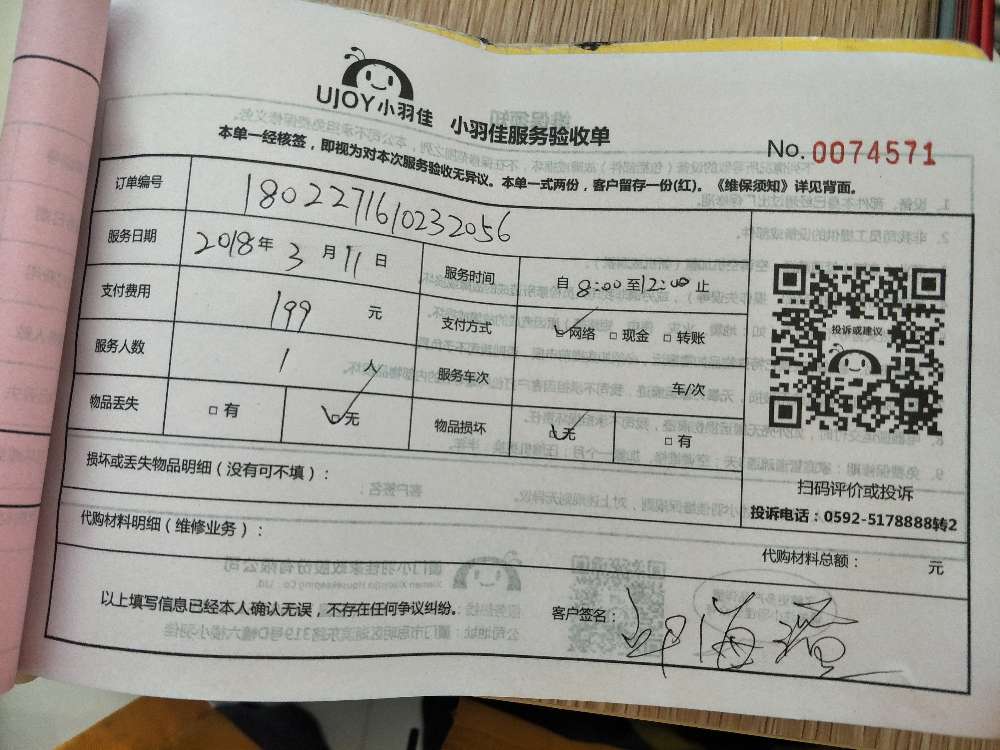 UJOY小羽佳 小羽佳服务验收单
No. 0074571
本单一经核签，即视为对本次服务验收无异议。本单一式两份，客户留存一份(红)。《维保须知》详见背面。
订单编号 1802271610232056
服务日期 2018年 3 月 11 日 服务时间 自 8:00 至12:00 止
支付费用 199 元 支付方式 网络 □ 现金 □ 转账
服务人数 1 人 服务车次 车/次
物品丢失 □ 有 无 物品损坏 无 □ 有
投诉或建议
扫码评价或投诉
投诉电话：0592-5178888转2
损坏或丢失物品明细（没有可不填）：
代购材料明细（维修业务）：
代购材料总额： 元
以上填写信息已经本人确认无误，不存在任何争议纠纷。 客户签名：